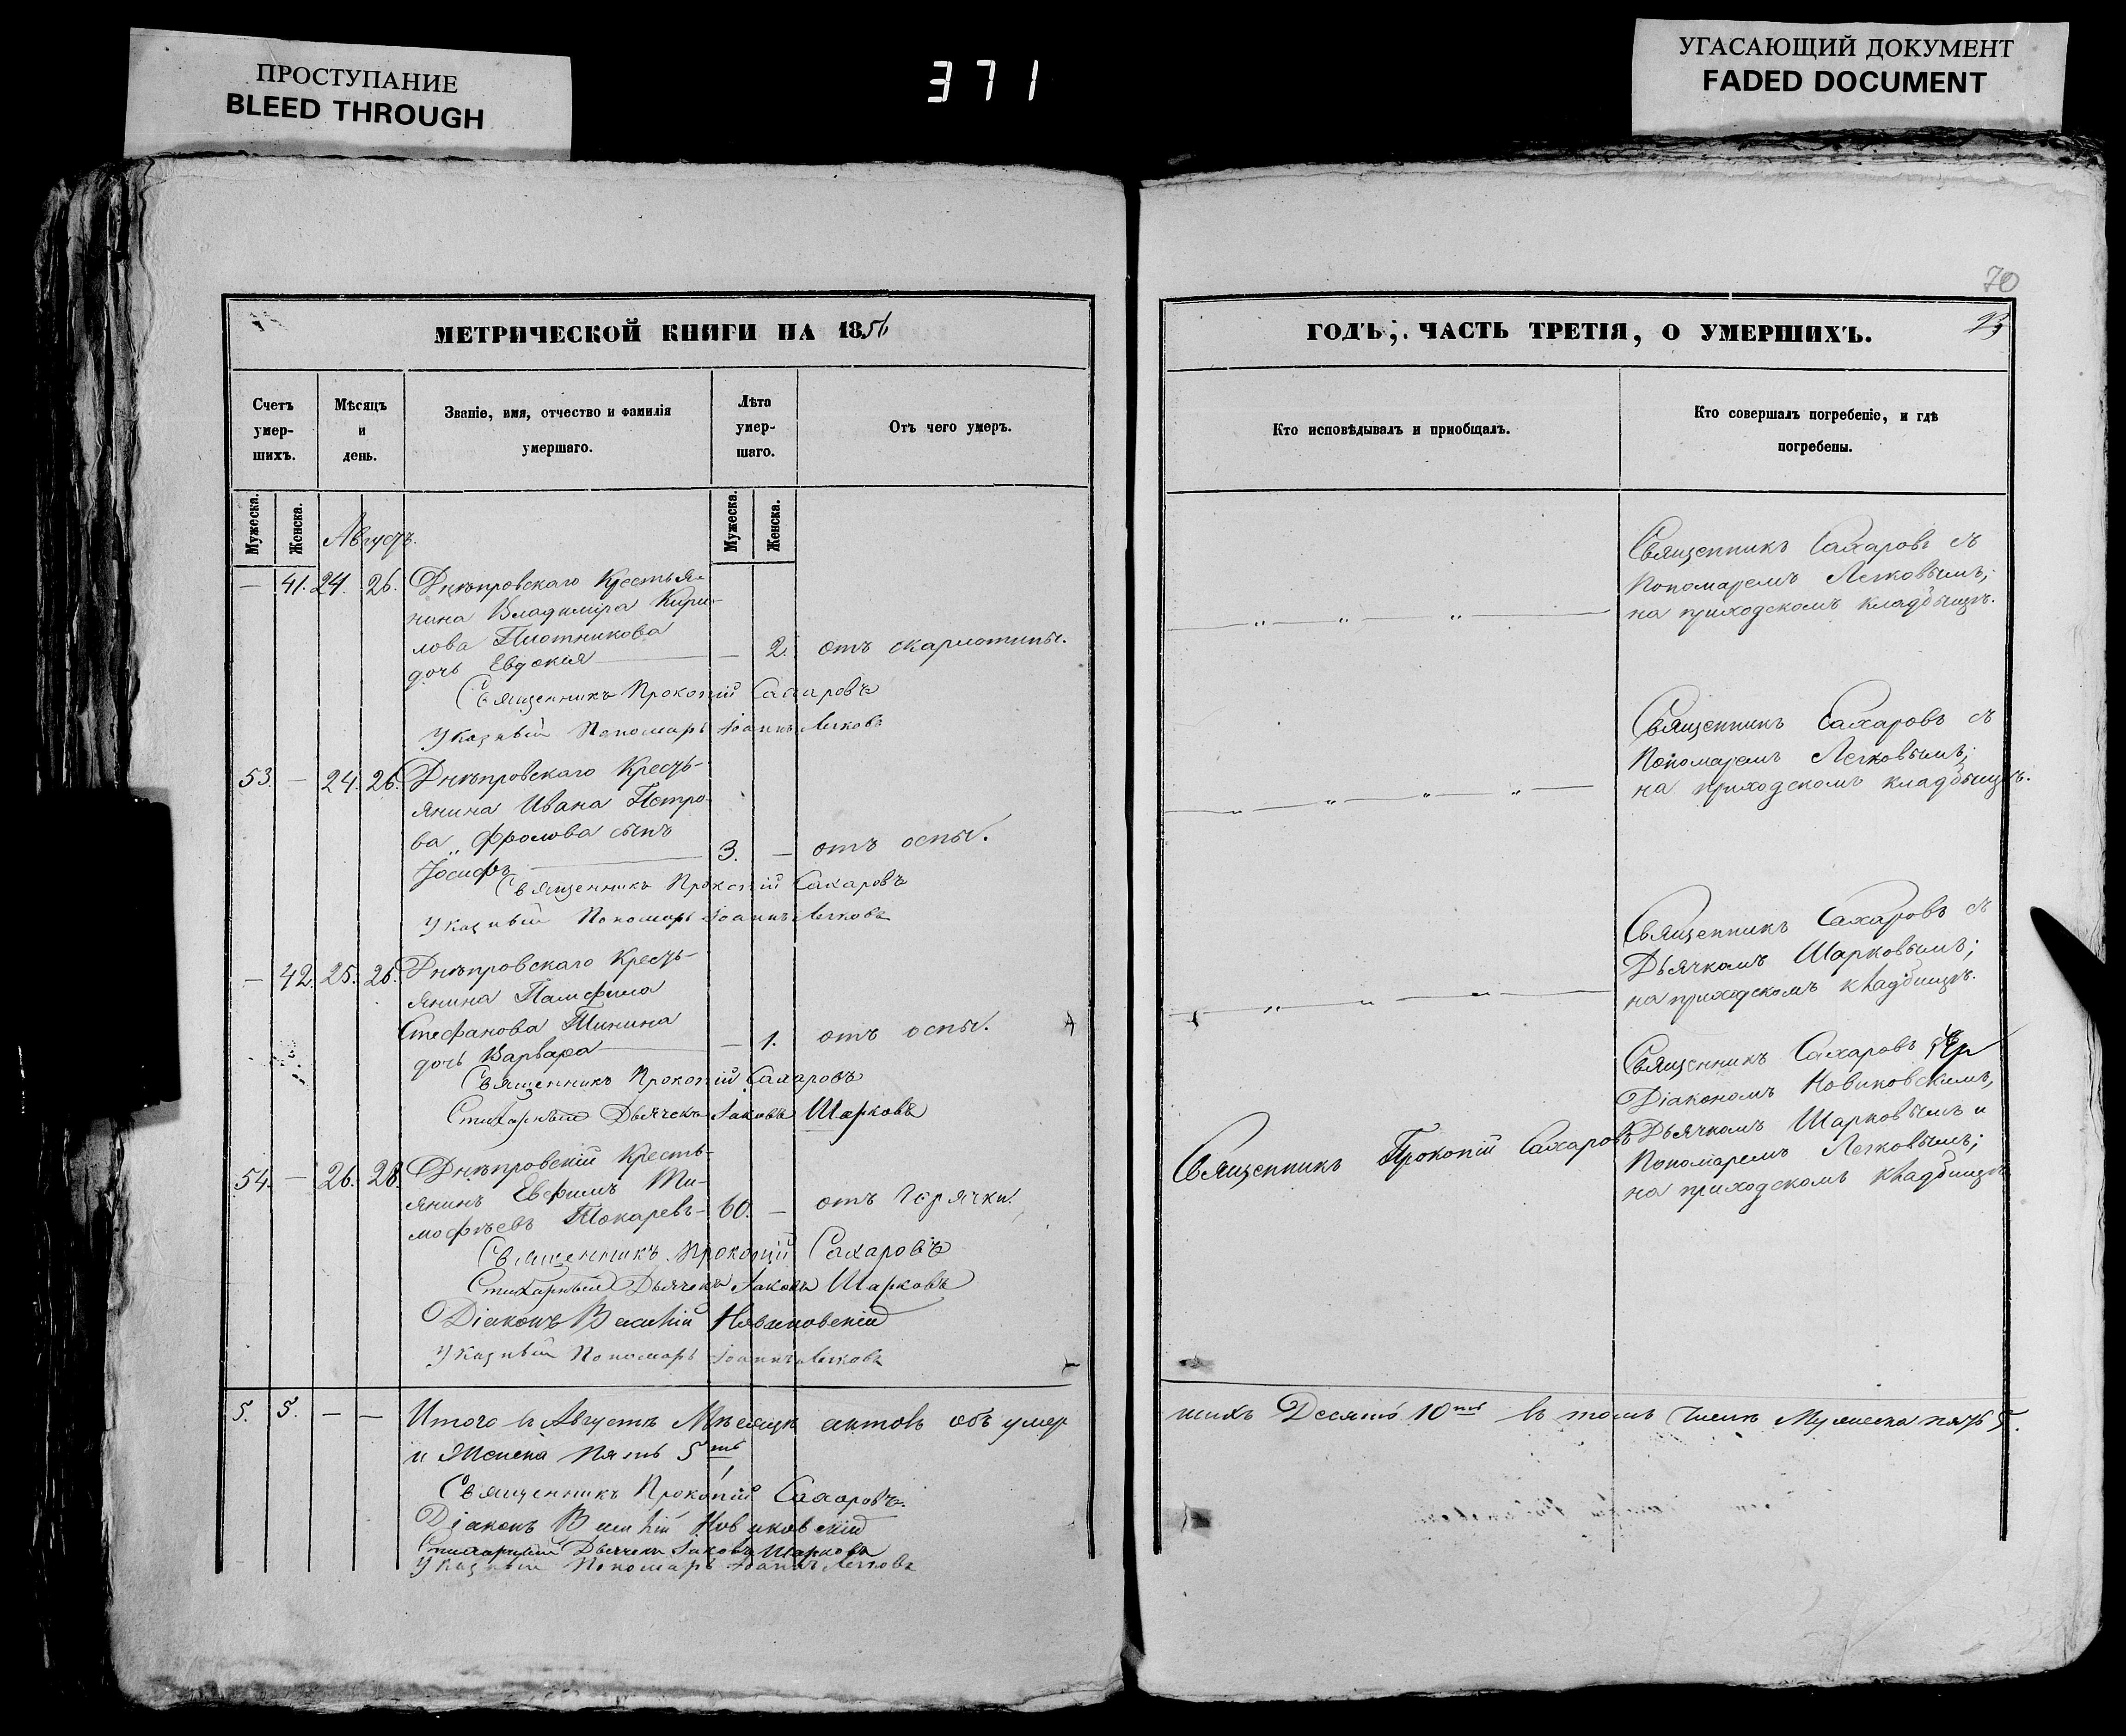 ПРОСТУПАНИЕ
BLEED THROUGH
371
УГАСАЮЩИЙ ДОКУМЕНТ
FADED DOCUMENT
МЕТРИЧЕСКОЙ КНИГИ НА 1856
Счетъ умер- шихъ.
Мѣсяцъ и день.
Званіе, имя, отчество и фамилія умершаго.
Лѣта умер- шаго.
Отъ чего умеръ.
Мужеска.
Женска.
Мужеска.
Женска.
Августъ.
— 41. 24. 26. Днѣпровскаго Крестья-
нина Владиміра Кири-
лова Плотникова
дочь Евдокія — 2. отъ скарлотины.
Священникъ Прокопій Сахаровъ
Указный Пономарь Іоаннъ Легковъ
53. — 24. 26. Днѣпровскаго Кресть-
янина Ивана Петро-
ва Фролова сынъ
Іосифъ 3. — отъ оспы.
Священникъ Прокопій Сахаровъ
Указный Пономарь Іоаннъ Легковъ
— 42. 25. 26. Днѣпровскаго Кресть-
янина Памфила
Стефанова Тинина
дочь Варвара — 1. отъ оспы.
Священникъ Прокопій Сахаровъ
Стихарный Дьячекъ Іаковъ Шарковъ
54. — 26. 28. Днѣпровскій Кресть-
янинъ Евфимъ Ти-
мофѣевъ Токаревъ 60. — отъ горячки.
Священникъ Прокопій Сахаровъ
Стихарный Дьячекъ Іаковъ Шарковъ
Діаконъ Василій Новиковскій
Указный Пономарь Іоаннъ Легковъ
5. 5. — — Итого въ Августѣ Мѣсяцѣ актовъ объ умер
и Женска Пять 5ть
Священникъ Прокопій Сахаровъ.
Діаконъ Василій Новиковскій
Стихарный Дьячекъ Іаковъ Шарковъ
Указный Пономарь Іоаннъ Легковъ
70
ГОДЪ, ЧАСТЬ ТРЕТІЯ, О УМЕРШИХЪ.
Кто исповѣдывалъ и пріобщалъ.
Кто совершалъ погребеніе, и гдѣ погребены.
Священникъ Сахаровъ съ
Пономаремъ Легковымъ;
на приходскомъ кладбищѣ.
Священникъ Сахаровъ съ
Пономаремъ Легковымъ;
на приходскомъ кладбищѣ.
Священникъ Сахаровъ съ
Дьячкомъ Шарковымъ;
на приходскомъ кладбищѣ.
Священникъ Прокопій Сахаровъ
Священникъ Сахаровъ съ
Діакономъ Новиковскимъ,
Дьячкомъ Шарковымъ и
Пономаремъ Легковымъ;
на приходскомъ кладбищѣ
шихъ Десять 10ть въ томъ числѣ Мужеска пять 5.